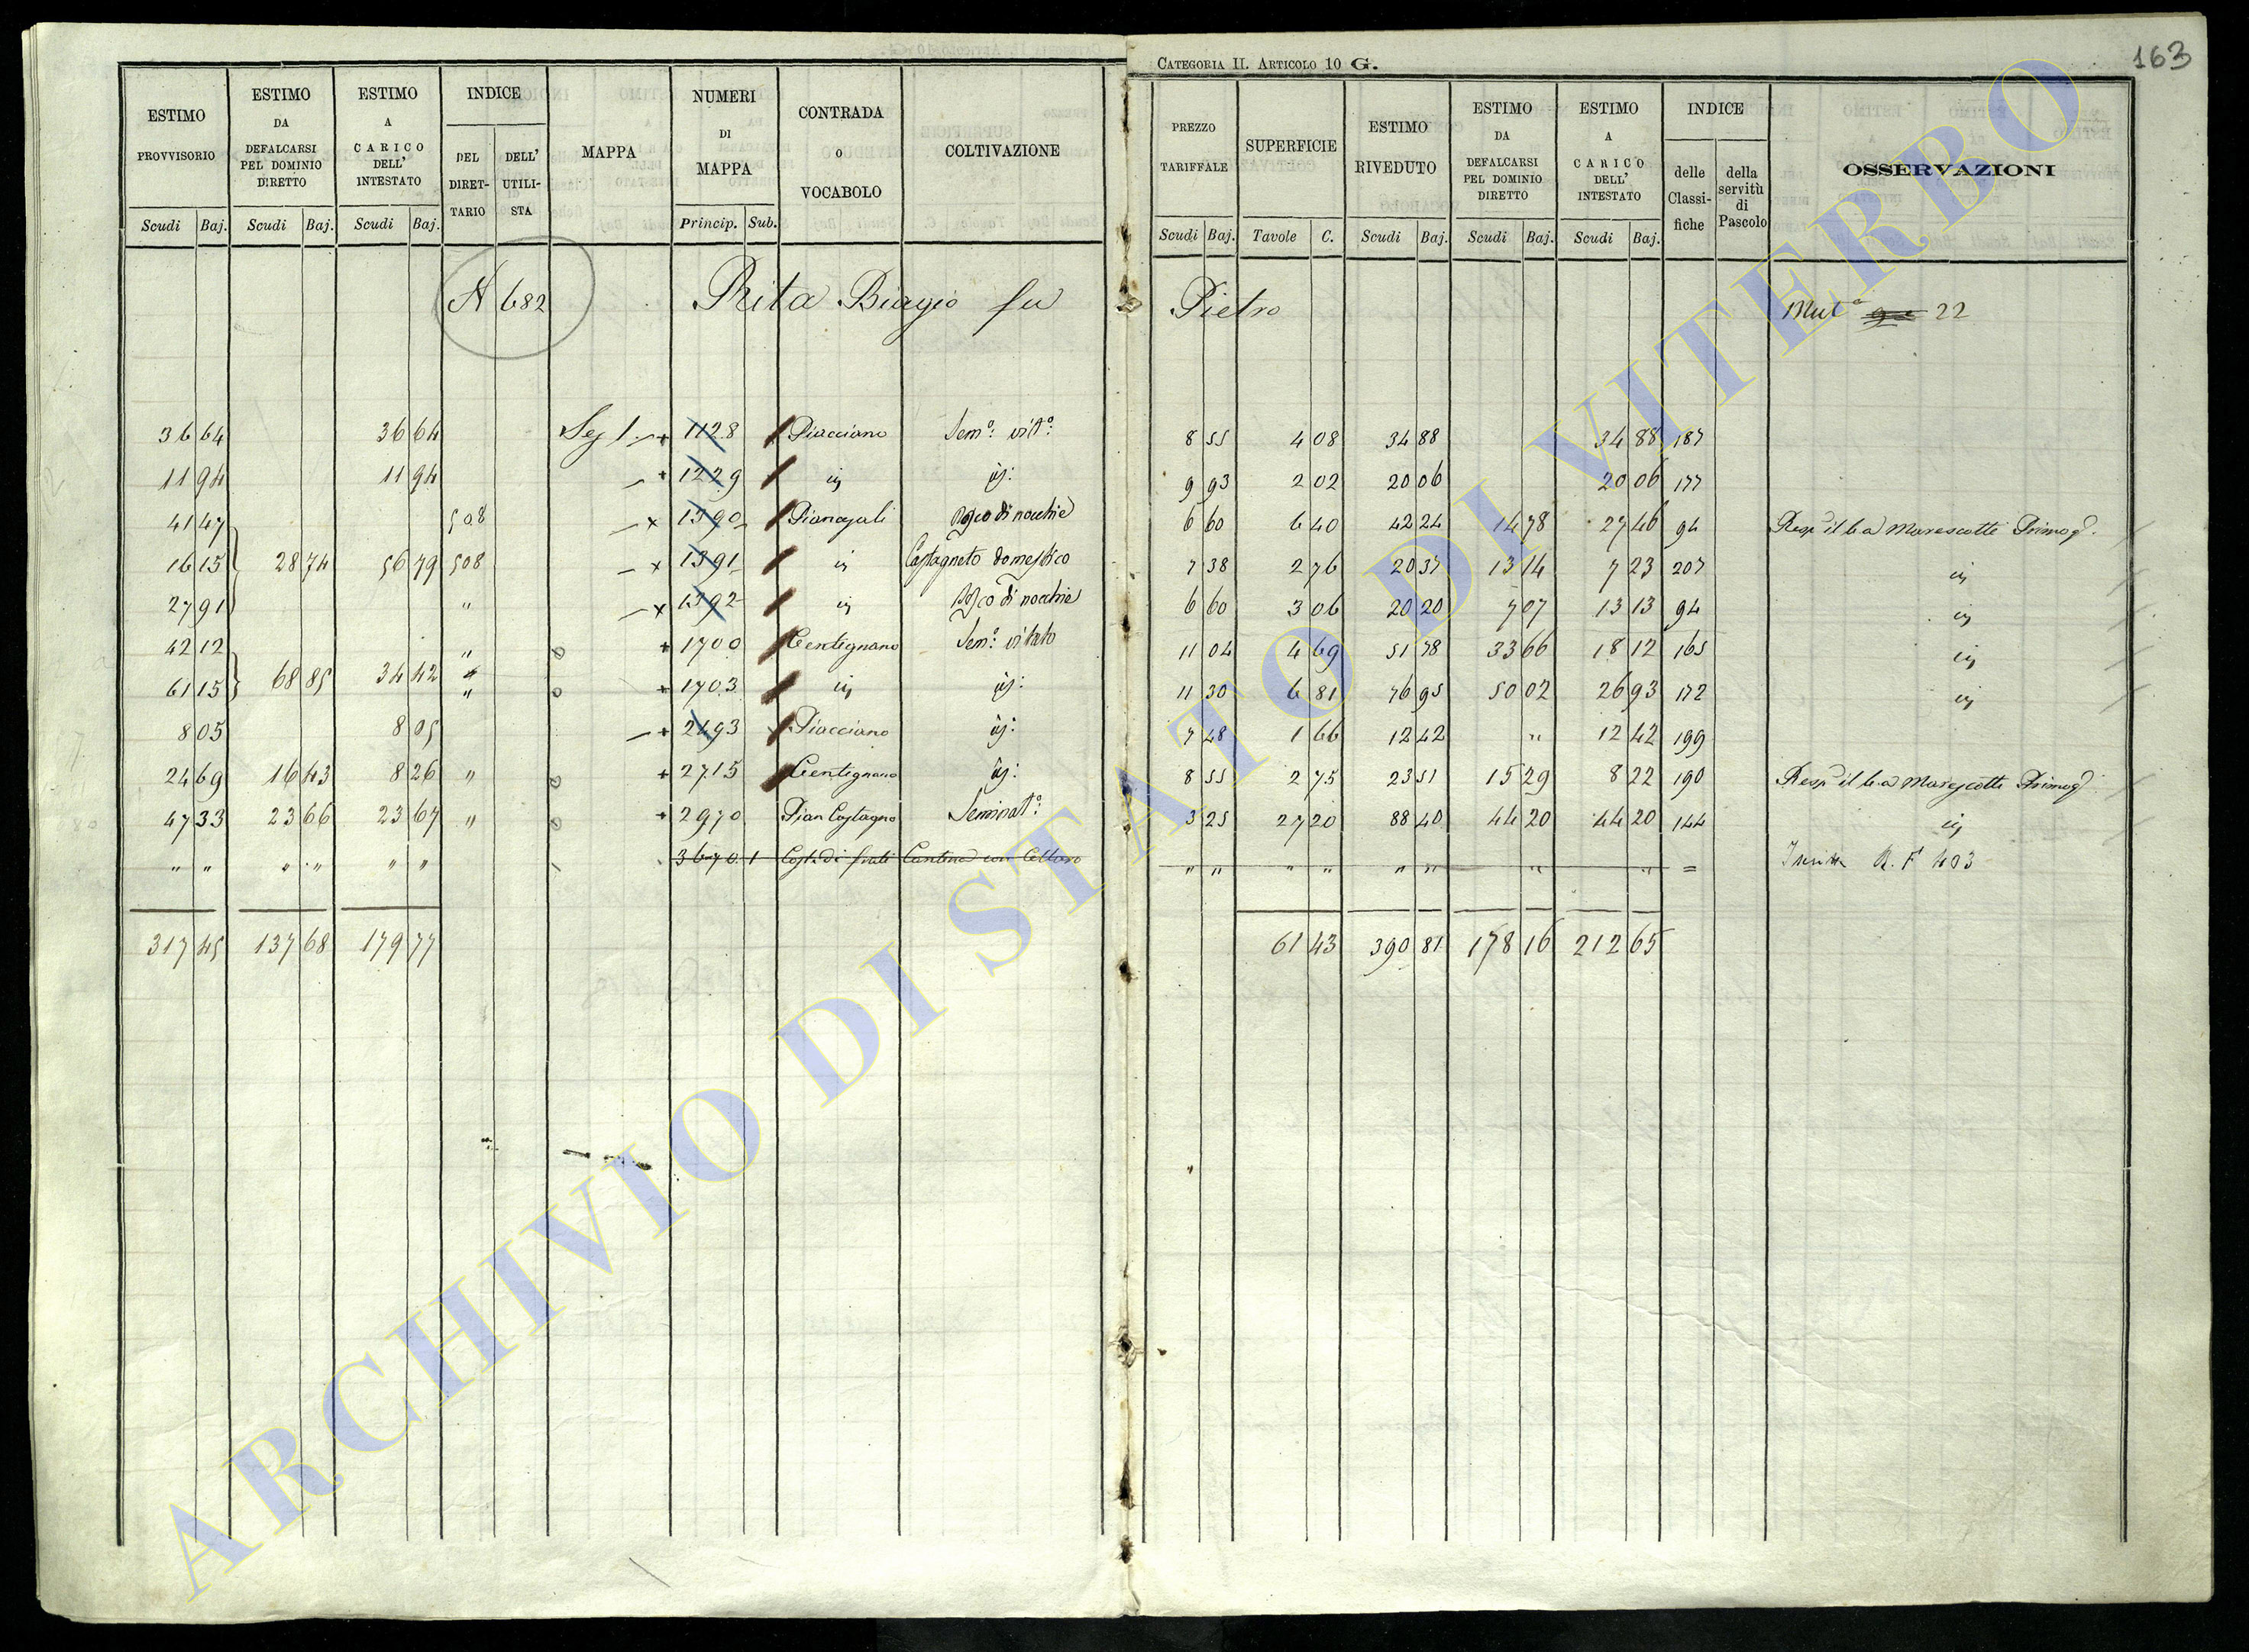 CATEGORIA II. ARTICOLO 10 G.
163
ESTIMO PROVVISORIO Scudi Baj.
ESTIMO DA DEFALCARSI PEL DOMINIO DIRETTO Scudi Baj.
ESTIMO A CARICO DELL' INTESTATO Scudi Baj.
INDICE DEL DIRETTARIO DELL' UTILISTA
MAPPA
NUMERI DI MAPPA Princip. Sub.
CONTRADA O VOCABOLO
COLTIVAZIONE
PREZZO TARIFFALE Scudi Baj.
SUPERFICIE Tavole C.
ESTIMO RIVEDUTO Scudi Baj.
ESTIMO DA DEFALCARSI PEL DOMINIO DIRETTO Scudi Baj.
ESTIMO A CARICO DELL' INTESTATO Scudi Baj.
INDICE delle Classifiche della servitù di Pascolo
OSSERVAZIONI
N 682 Rita Biagio fu Pietro Mut.e 22
36 64 36 64 Seg 1 1128 Piacciano Sem.o vit.o 8 55 4 08 34 88 34 88 187
11 94 11 94 1229 id id: 9 93 2 02 20 06 20 06 177
41 47 508 1390 Pianagali Bosco di nocchie 6 60 6 40 42 24 14 78 27 46 94 Resp il b.a Marescotti Primog.
16 15 28 74 56 79 508 1391 id Castagneto domestico 7 38 2 76 20 37 13 14 7 23 207 id
27 91 " 1392 id Bosco di nocchie 6 60 3 06 20 20 7 07 13 13 94 id
42 12 " 0 1700 Centignano Sem.o vitato 11 04 4 69 51 78 33 66 18 12 165 id
61 15 68 85 34 42 " 0 1703 id id: 11 30 6 81 76 95 50 02 26 93 172 id
8 05 8 05 2493 Piacciano id: 7 48 1 66 12 42 " 12 42 199
24 69 16 43 8 26 " 0 2715 Centignano id: 8 55 2 75 23 51 15 29 8 22 190 Resp il b.a Marescotti Primog.
47 33 23 66 23 67 " 0 2970 Pian Castagno Seminat.o 3 25 27 20 88 40 44 20 44 20 144 id
" " " " " " 3670 1 Costa di frati Cantina con " " " " " " " " = R. F 403
317 45 137 68 179 77 61 43 390 81 178 16 212 65
ARCHIVIO DI STATO DI VITERBO